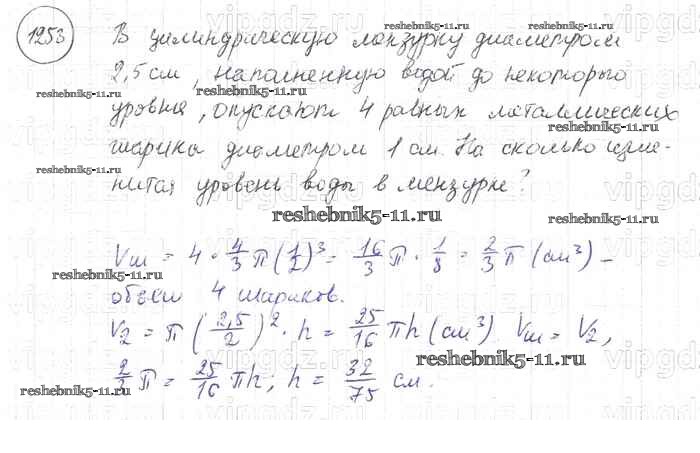 1253 В цилиндрическую мензурку диаметром
2,5 см, наполненную водой до некоторого
уровня, опускают 4 равных металлических
шарика диаметром 1 см. На сколько изме-
нится уровень воды в мензурке?
Vш = 4 · 4/3 π (1/2)³ = 16/3 π · 1/8 = 2/3 π (см³) –
объем 4 шариков.
V₂ = π (2,5/2)² · h = 25/16 πh (см³) Vш = V₂,
2/3 π = 25/16 πh; h = 32/75 см.
vipgdz.ru
reshebnik5-11.ru